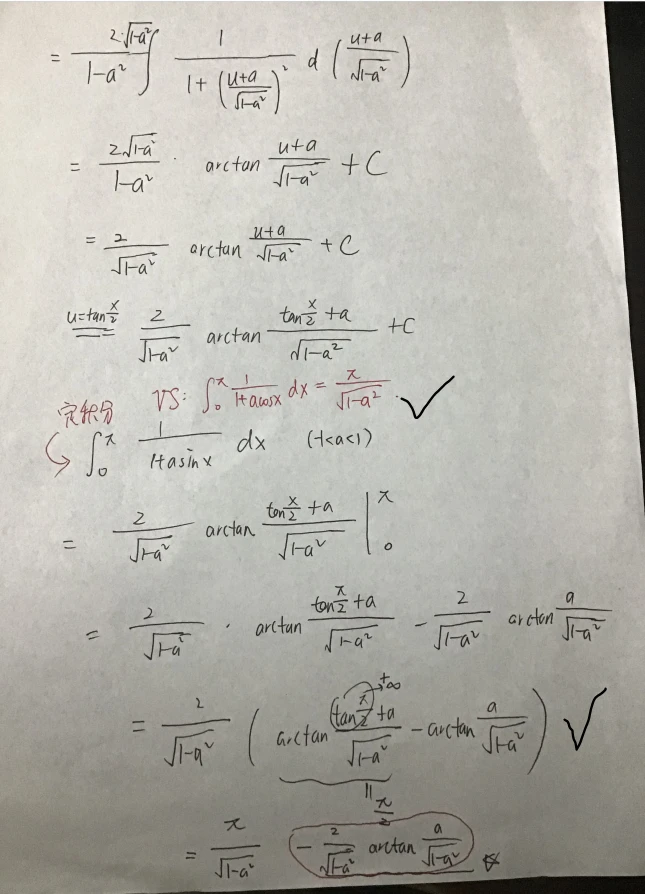 = 2·√(1-a²) / (1-a²) ∫ 1 / (1 + ((u+a)/√(1-a²))²) d ((u+a)/√(1-a²))
= 2√(1-a²) / (1-a²) · arctan (u+a)/√(1-a²) + C
= 2/√(1-a²) arctan (u+a)/√(1-a²) + C
u=tan x/2 == 2/√(1-a²) arctan (tan x/2 + a)/√(1-a²) + C
定积分 VS: ∫₀^π 1/(1+acosx) dx = π/√(1-a²). ✓
∫₀^π 1/(1+asinx) dx (-1<a<1)
= 2/√(1-a²) arctan (tan x/2 + a)/√(1-a²) |₀^π
= 2/√(1-a²) · arctan (tan π/2 + a)/√(1-a²) - 2/√(1-a²) arctan a/√(1-a²)
= 2/√(1-a²) ( arctan (tan π/2 + a)/√(1-a²) - arctan a/√(1-a²) ) ✓
→ +∞
|| π/2
= π/√(1-a²) - 2/√(1-a²) arctan a/√(1-a²)